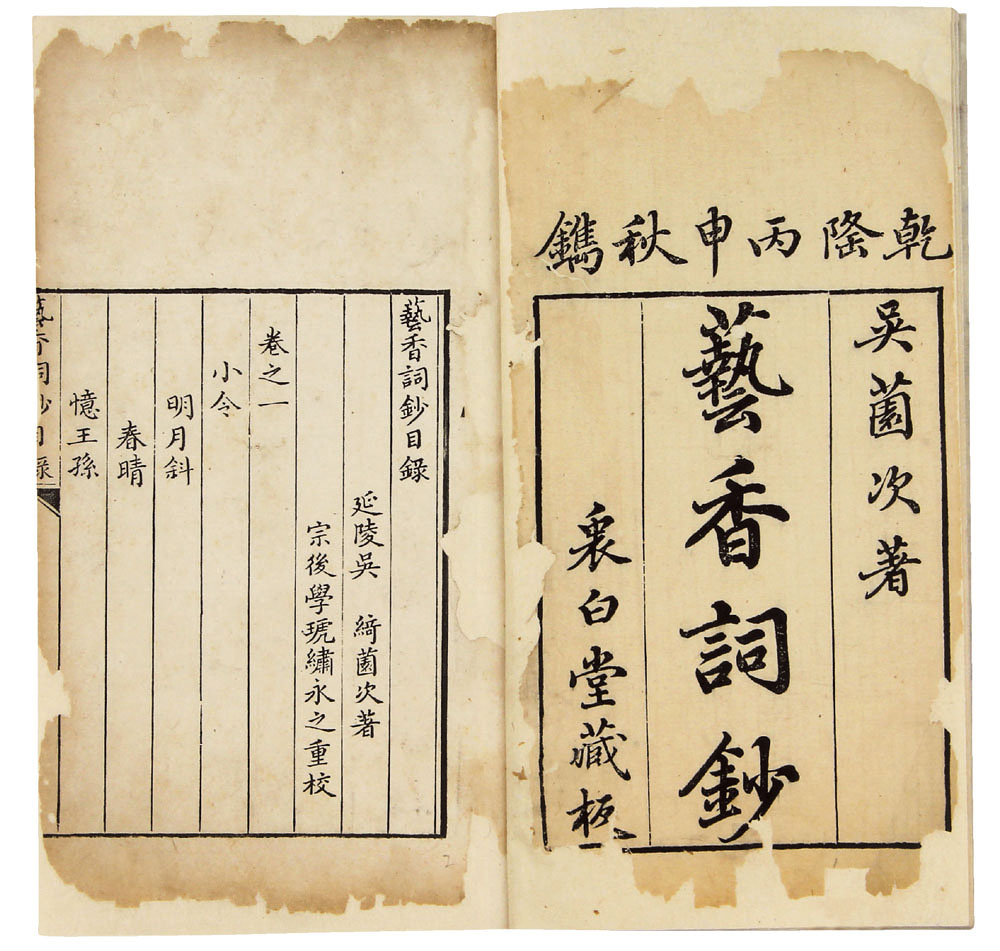 乾隆丙申秋鐫
吳薗次著
藝香詞鈔
衷白堂藏板
藝香詞鈔目錄
延陵吳 綺薗次著
宗後學琥繡永之重校
卷之一
小令
明月斜
春晴
憶王孫
藝香詞鈔目錄
2